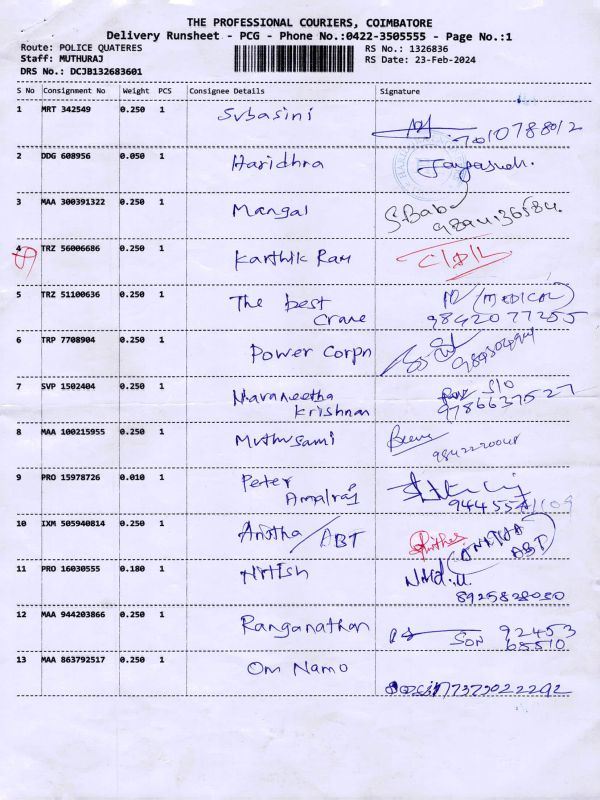 THE PROFESSIONAL COURIERS, COIMBATORE
Delivery Runsheet - PCG - Phone No.:0422-3505555 - Page No.:1
Route: POLICE QUATERES RS No.: 1326836
Staff: MUTHURAJ RS Date: 23-Feb-2024
DRS No.: DCJB132683601
S No Consignment No Weight PCS Consignee Details Signature
1 MRT 342549 0.250 1 Subasini
7010788012
2 DDG 608956 0.050 1 Haridhra
3 MAA 300391322 0.250 1 Mangal S. Babu
9894136584.
4 TRZ 56006686 0.250 1 Karthik Ram
5 TRZ 51100636 0.250 1 The best (MEDICAL)
Crane 9842077255
6 TRP 7708904 0.250 1 Power Corpn
7 SVP 1502404 0.250 1 Navaneetha S/O
Krishnan 9786637527
8 MAA 100215955 0.250 1 Muthusami
9842220048
9 PRO 15978726 0.010 1 Peter
Amalraj
10 IXM 505940814 0.250 1 Anitha/ABT ANITHA
ABT
11 PRO 16030555 0.180 1 Nitish
8925828030
12 MAA 944203866 0.250 1 Ranganathan SON 92453
65510
13 MAA 863792517 0.250 1 Om Namo 7373022292